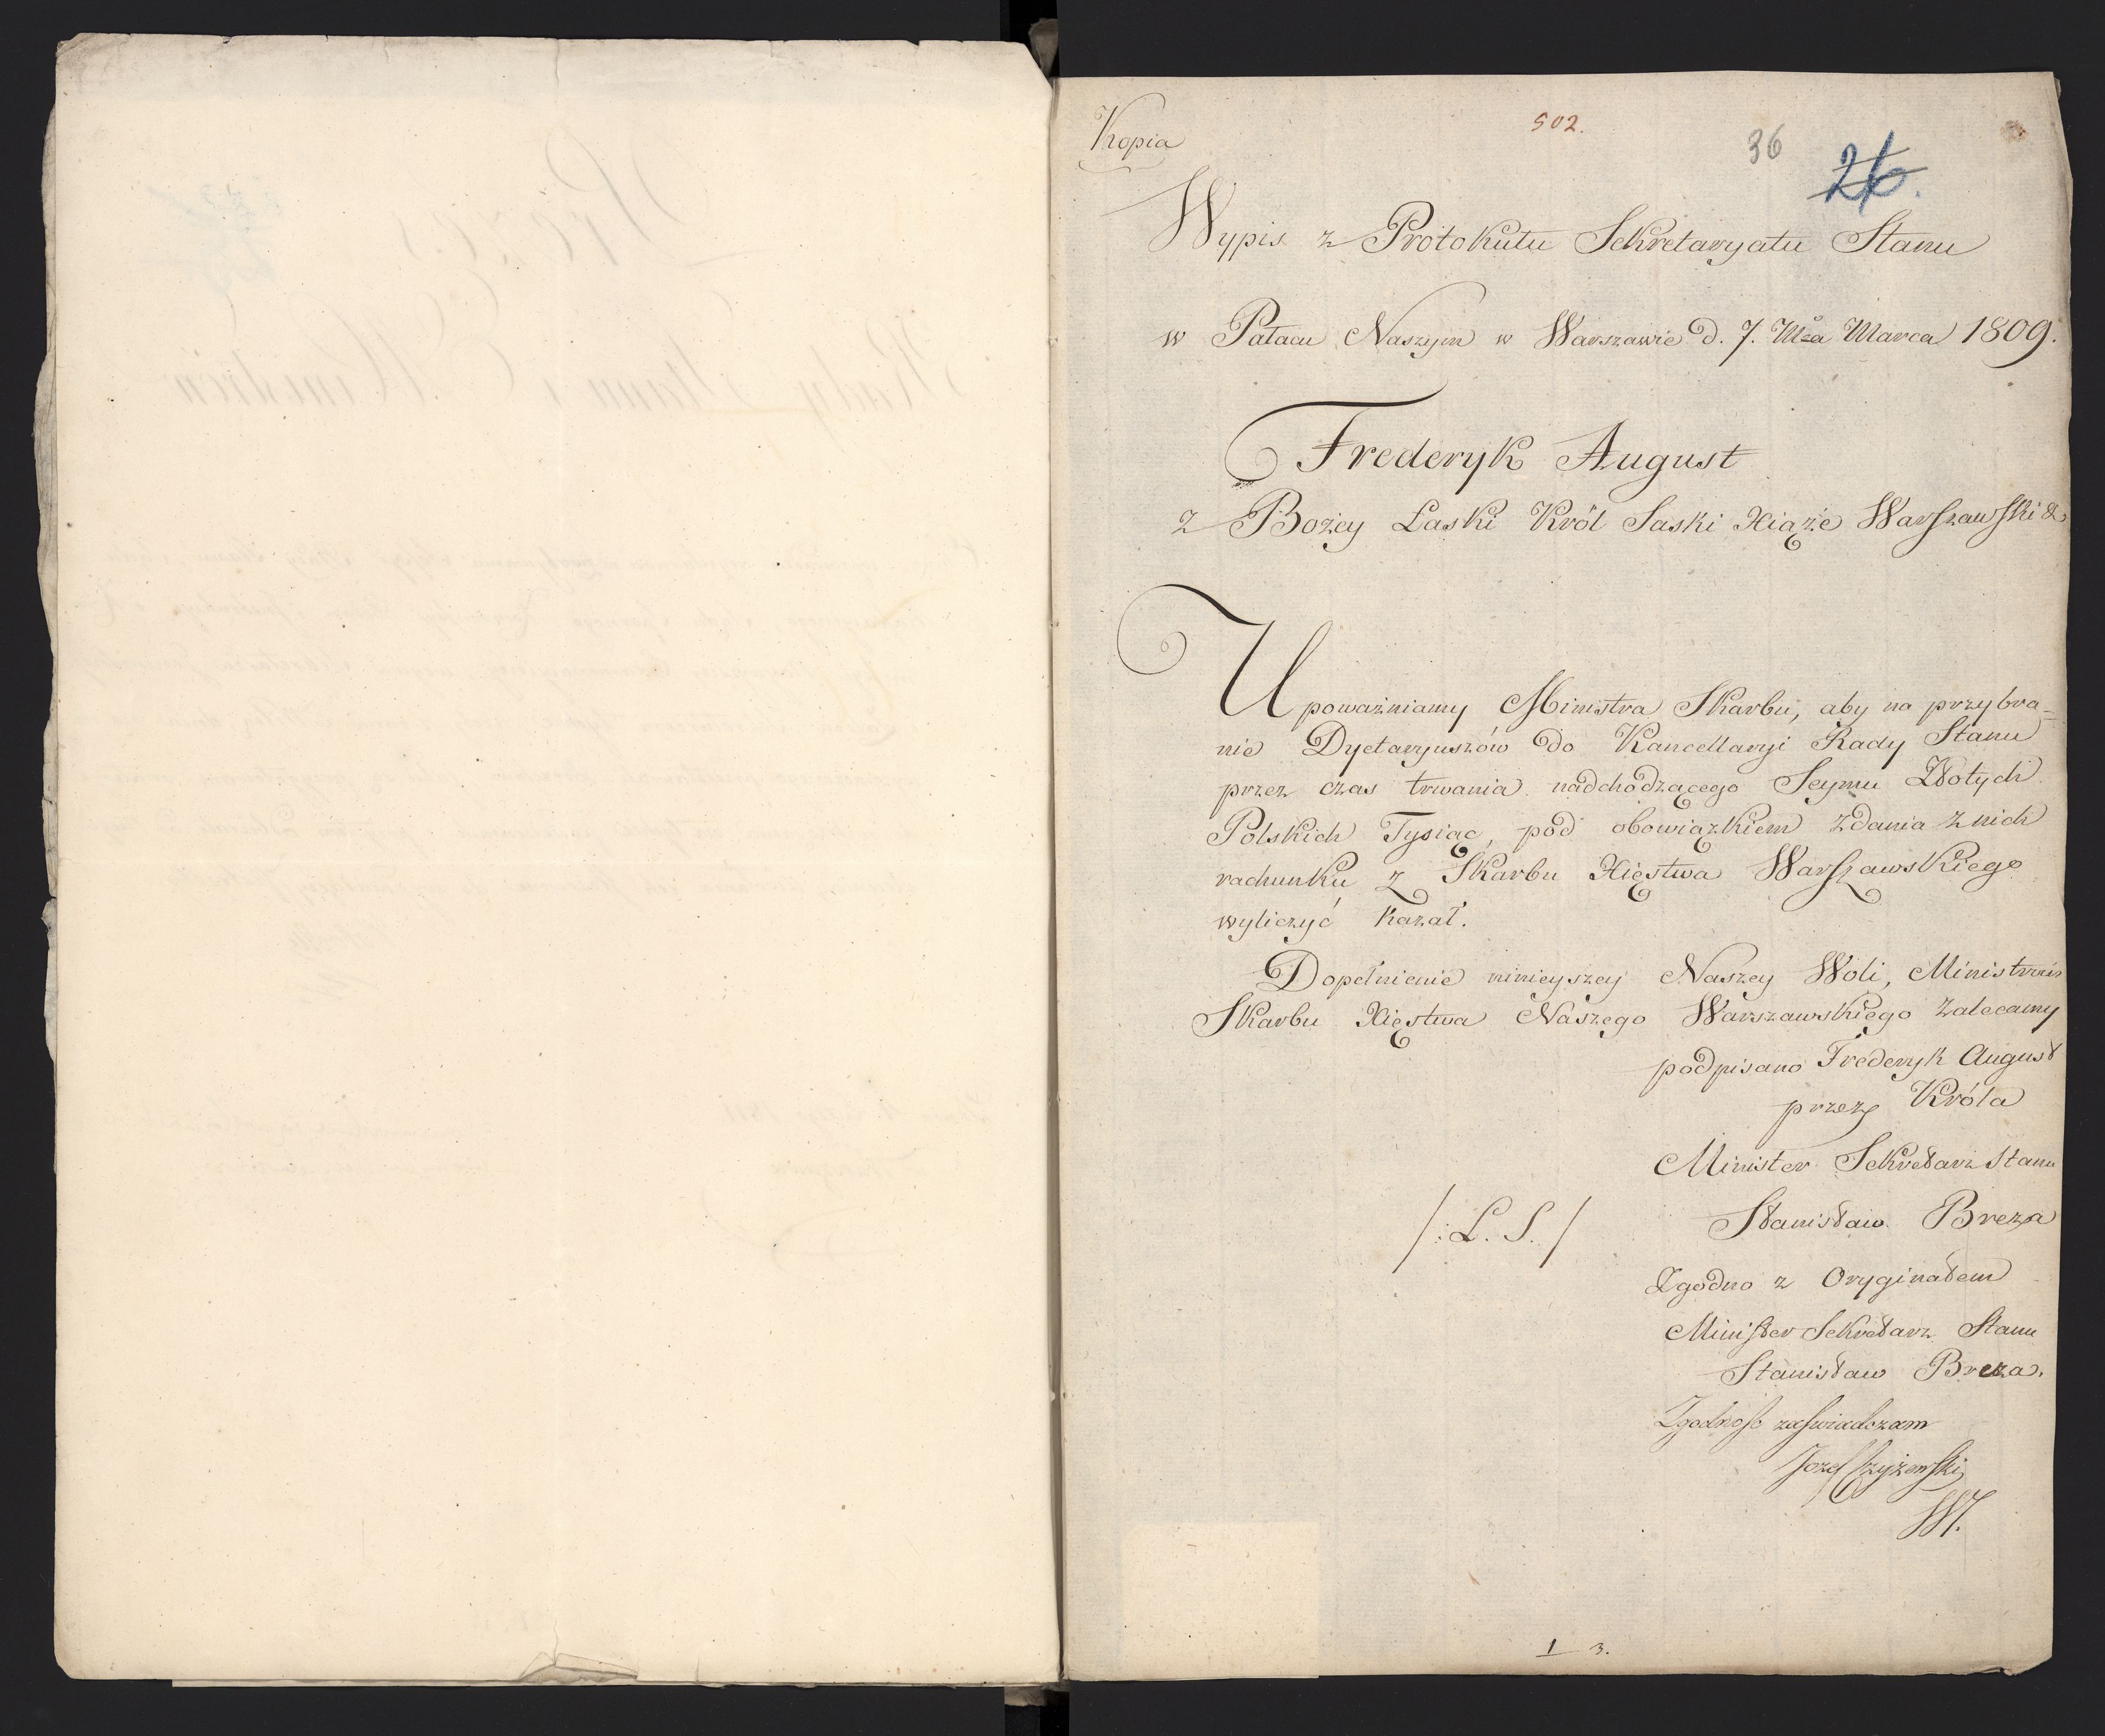 Kopia
502.
36
26.
Wypis z Protokułu Sekretaryatu Stanu
w Pałacu Naszym w Warszawie d. 7. Mca Marca 1809.
Frederyk August
z Bożey Łaski Król Saski Xiąże Warszawski &
Upoważniamy Ministra Skarbu, aby na przybra=
nie Dyetaryuszów do Kancellaryi Rady Stanu
przez czas trwania nadchodzącego Seymu Złotych
Polskich Tysiąc, pod obowiązkiem zdania z nich
rachunku z Skarbu Xięstwa Warszawskiego
wyliczyć kazał.
Dopełnienie ninieyszey Naszey Woli, Ministrowi
Skarbu Xięstwa Naszego Warszawskiego zalecamy
podpisano Frederyk August
przez Króla
Minister Sekretarz Stanu
/:L. S./
Stanisław Breza
Zgodno z Oryginałem
Minister Sekretarz Stanu
Stanisław Breza.
Zgodność zaświadczam
Jozef Czyżewski
1 3.